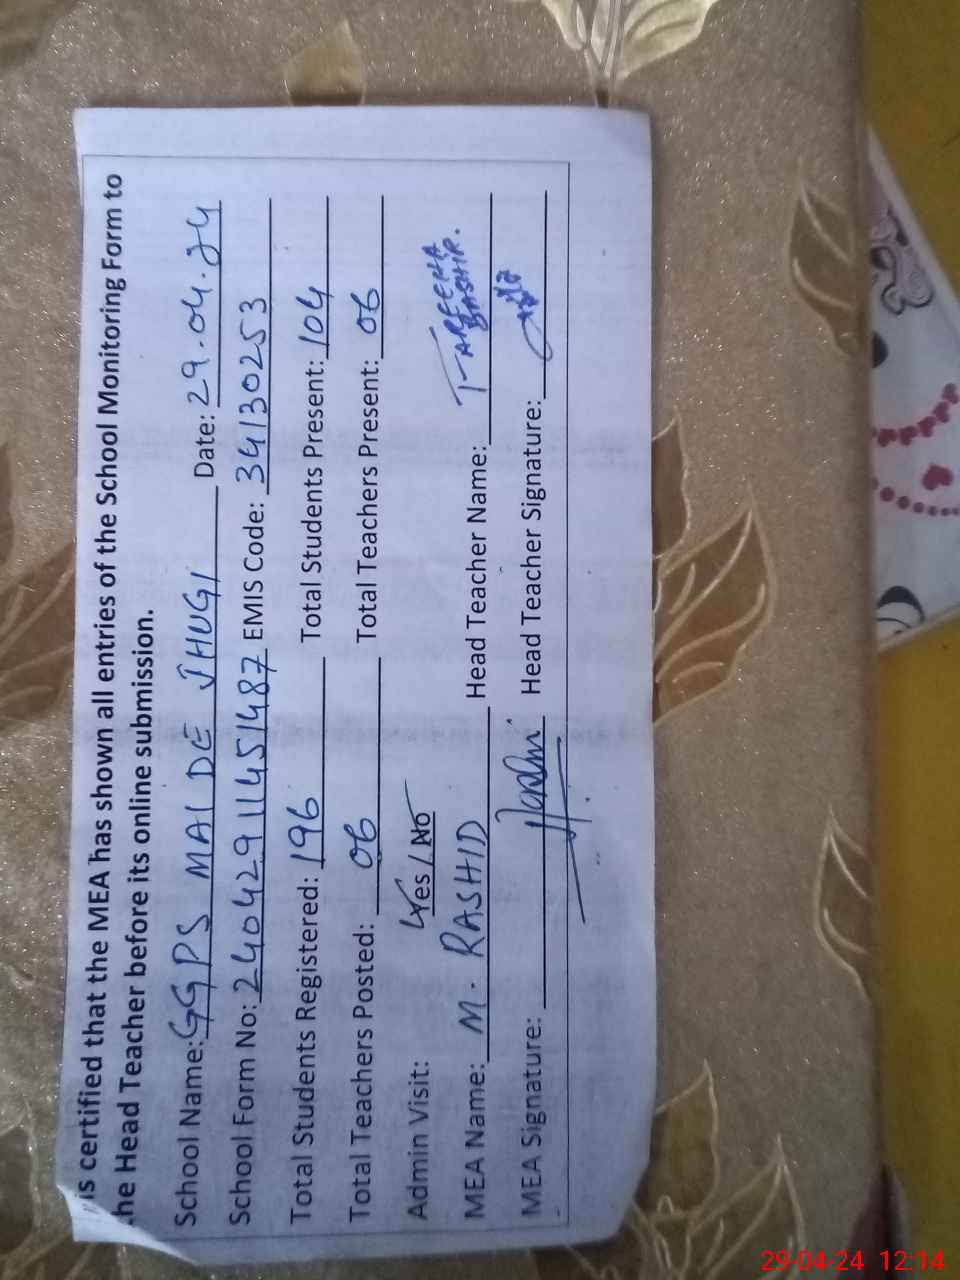 is certified that the MEA has shown all entries of the School Monitoring Form to
the Head Teacher before its online submission.
School Name: GGPS MAI DE JHUGI Date: 29.04.24
School Form No: 24042911451487 EMIS Code: 34130253
Total Students Registered: 196 Total Students Present: 104
Total Teachers Posted: 06 Total Teachers Present: 06
Admin Visit: Yes / No
MEA Name: M. RASHID Head Teacher Name: TAREENA BASHIR.
MEA Signature: Head Teacher Signature:
29-04-24 12:14